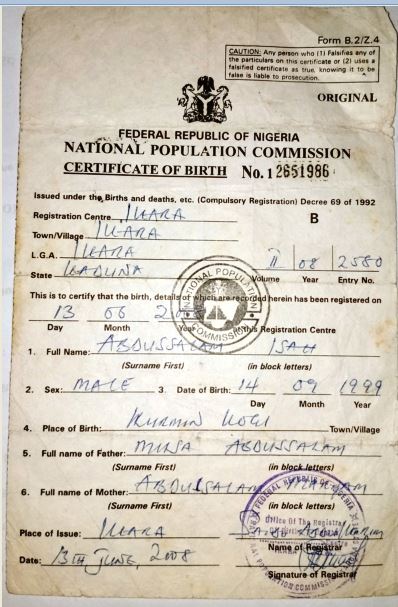 Form B.2/Z.4
CAUTION: Any person who (1) Falsifies any of
the particulars on this certificate or (2) uses a
falsified certificate as true, knowing it to be
false is liable to prosecution.
ORIGINAL
FEDERAL REPUBLIC OF NIGERIA
NATIONAL POPULATION COMMISSION
CERTIFICATE OF BIRTH No. 1 2651986
Issued under the Births and deaths, etc. (Compulsory Registration) Decree 69 of 1992
Registration Centre IKARA
B
Town/Village IKARA
L.G.A. IKARA
II 08 2580
State KADUNA Volume Year Entry No.
NATIONAL POPULATION COMMISSION
This is to certify that the birth, details of which are recorded herein has been registered on
13 06
Day Month Year at this Registration Centre
1. Full Name: ABDUSSALAM ISAH
(Surname First) (in block letters)
2. Sex: MALE 3. Date of Birth: 14 09 1999
Day Month Year
4. Place of Birth: KURMIN KOGI Town/Village
5. Full name of Father: ABDUSSALAM
(Surname First) (in block letters)
6. Full name of Mother: ABDUSSALAM MARYAM
(Surname First) (in block letters)
FEDERAL REPUBLIC OF NIGERIA
Office Of The Registrar
Place of Issue: IKARA
Name of Registrar
Date: 13TH JUNE, 2008
Signature of Registrar